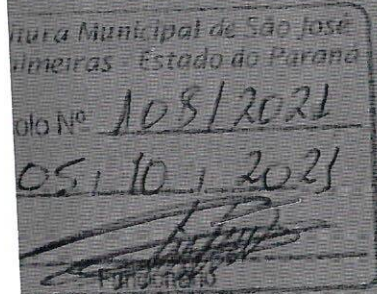 itura Municipal de São José
almeiras - Estado do Paraná
olo Nº 108/2021
05, 10, 2021
Funcionário